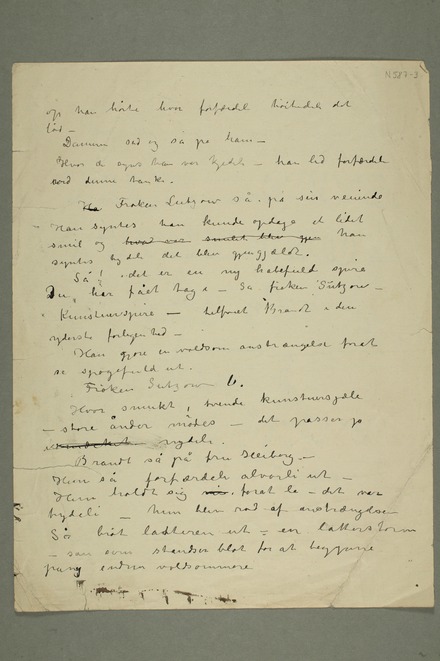 N 587-3
og han hørte hvor forfærdeli høitideli det
lød—
Damen sad og så på ham—
Hvor de synes han var kjedeli — han lid forfærdeli
ved denne tanke.
Ha Frøken Lutzow så på sin veninde
Han syntes han kunde opdage et lidet
smil og hvad var smilet blev gjen han
syntes tydeli det blev gjengjældt.
Så! det er en ny håbefuld spire
Du har fået tag i — Sa frøken Lutzow—
Kunstnerspire — helfoiet Brandt i den
yderste forlegenhed—
Han gjore en voldsom anstrængelse forat
se spøgefuld ut.
Frøken Lutzow lo.
Hvor smukt, tvende kunstnersjæle
— store ånder mødes — det passer jo
nydeli.
Brandt så på fru Heiberg—
Hun så forfærdeli alvorli ut—
Hun holdt sig forat le — det var
tydeli — hun blev rød af anstrængelse
Så brøt latteren ut — en latterstorm
— som som standser blot for at begynne
endnu voldsommere